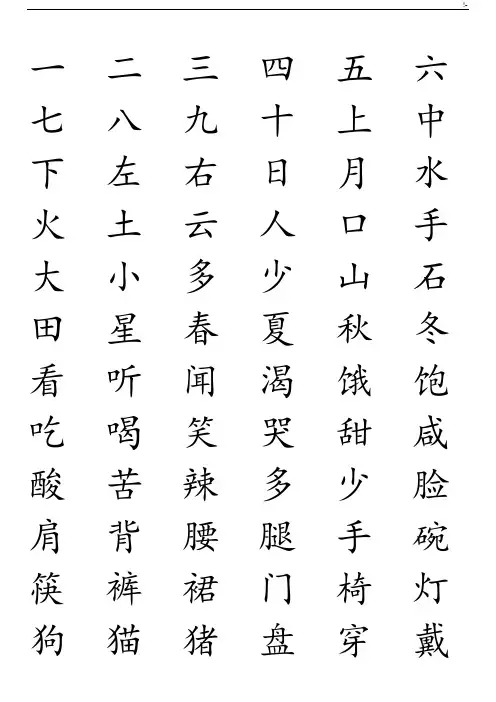 一 二 三 四 五 六
七 八 九 十 上 中
下 左 右 日 月 水
火 土 云 人 口 手
大 小 多 少 山 石
田 星 春 夏 秋 冬
看 听 闻 渴 饿 饱
吃 喝 笑 哭 甜 咸
酸 苦 辣 多 少 脸
肩 背 腰 腿 手 碗
筷 裤 裙 门 椅 灯
狗 猫 猪 盘 穿 戴